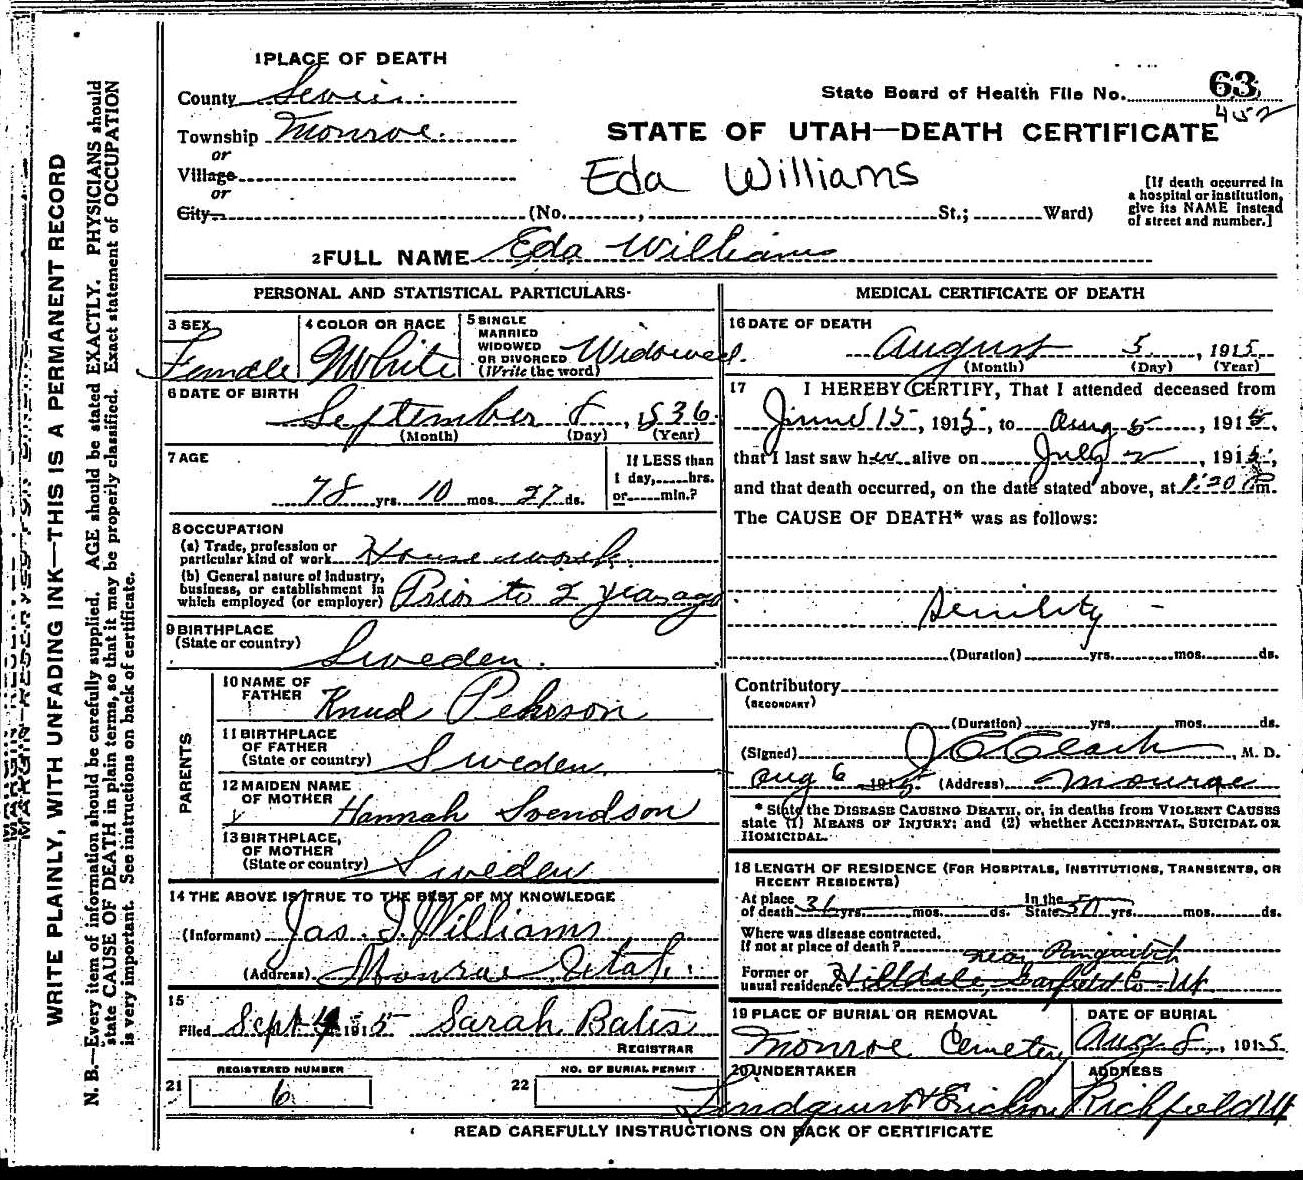 1 PLACE OF DEATH
County Sevier
State Board of Health File No. 63
452
Township Monroe
STATE OF UTAH—DEATH CERTIFICATE
or
Village
Eda Williams
or
City (No. , St.; Ward)
[If death occurred in a hospital or institution, give its NAME instead of street and number.]
2 FULL NAME Eda Williams
PERSONAL AND STATISTICAL PARTICULARS
3 SEX
Female
4 COLOR OR RACE
White
5 SINGLE MARRIED WIDOWED OR DIVORCED (Write the word)
Widowed.
6 DATE OF BIRTH
September 8, 1836
(Month) (Day) (Year)
7 AGE
78 yrs. 10 mos. 27 ds.
If LESS than 1 day, hrs. or min.?
8 OCCUPATION
(a) Trade, profession or particular kind of work Housework
(b) General nature of Industry, business, or establishment in which employed (or employer) Prior to 2 years ago
9 BIRTHPLACE
(State or country) Sweden.
PARENTS
10 NAME OF FATHER Knud Pehrson
11 BIRTHPLACE OF FATHER (State or country) Sweden
12 MAIDEN NAME OF MOTHER Hannah Svendson
13 BIRTHPLACE, OF MOTHER (State or country) Sweden
14 THE ABOVE IS TRUE TO THE BEST OF MY KNOWLEDGE
(Informant) Jas. I. Williams
(Address) Monroe Utah
15
Filed Sept 4 1915 Sarah Bates
REGISTRAR
21 REGISTERED NUMBER
6
22 NO. OF BURIAL PERMIT
MEDICAL CERTIFICATE OF DEATH
16 DATE OF DEATH
August 5, 1915
(Month) (Day) (Year)
17 I HEREBY CERTIFY, That I attended deceased from
June 15, 1915, to Aug 5, 1915,
that I last saw her alive on July 2, 1915,
and that death occurred, on the date stated above, at 1:20 Pm.
The CAUSE OF DEATH* was as follows:
Senility
(Duration) yrs. mos. ds.
Contributory
(SECONDARY)
(Duration) yrs. mos. ds.
(Signed) J C Clark, M. D.
Aug 6 1915 (Address) Monroe
* State the DISEASE CAUSING DEATH, or, in deaths from VIOLENT CAUSES
state (1) MEANS OF INJURY; and (2) whether ACCIDENTAL, SUICIDAL OR
HOMICIDAL.
18 LENGTH OF RESIDENCE (FOR HOSPITALS, INSTITUTIONS, TRANSIENTS, OR
RECENT RESIDENTS)
At place of death 36 yrs. mos. ds. In the State 50 yrs. mos. ds.
Where was disease contracted.
If not at place of death? near Panguitch
Former or usual residence Hilldale, Garfield Co Ut
19 PLACE OF BURIAL OR REMOVAL
Monroe Cemetery
DATE OF BURIAL
Aug 8, 1915
20 UNDERTAKER
Lindquist & Erickson
ADDRESS
Richfield Ut
READ CAREFULLY INSTRUCTIONS ON BACK OF CERTIFICATE
WRITE PLAINLY, WITH UNFADING INK—THIS IS A PERMANENT RECORD
N. B.—Every item of information should be carefully supplied. AGE should be stated EXACTLY. PHYSICIANS should
state CAUSE OF DEATH in plain terms, so that it may be properly classified. Exact statement of OCCUPATION
is very important. See instructions on back of certificate.